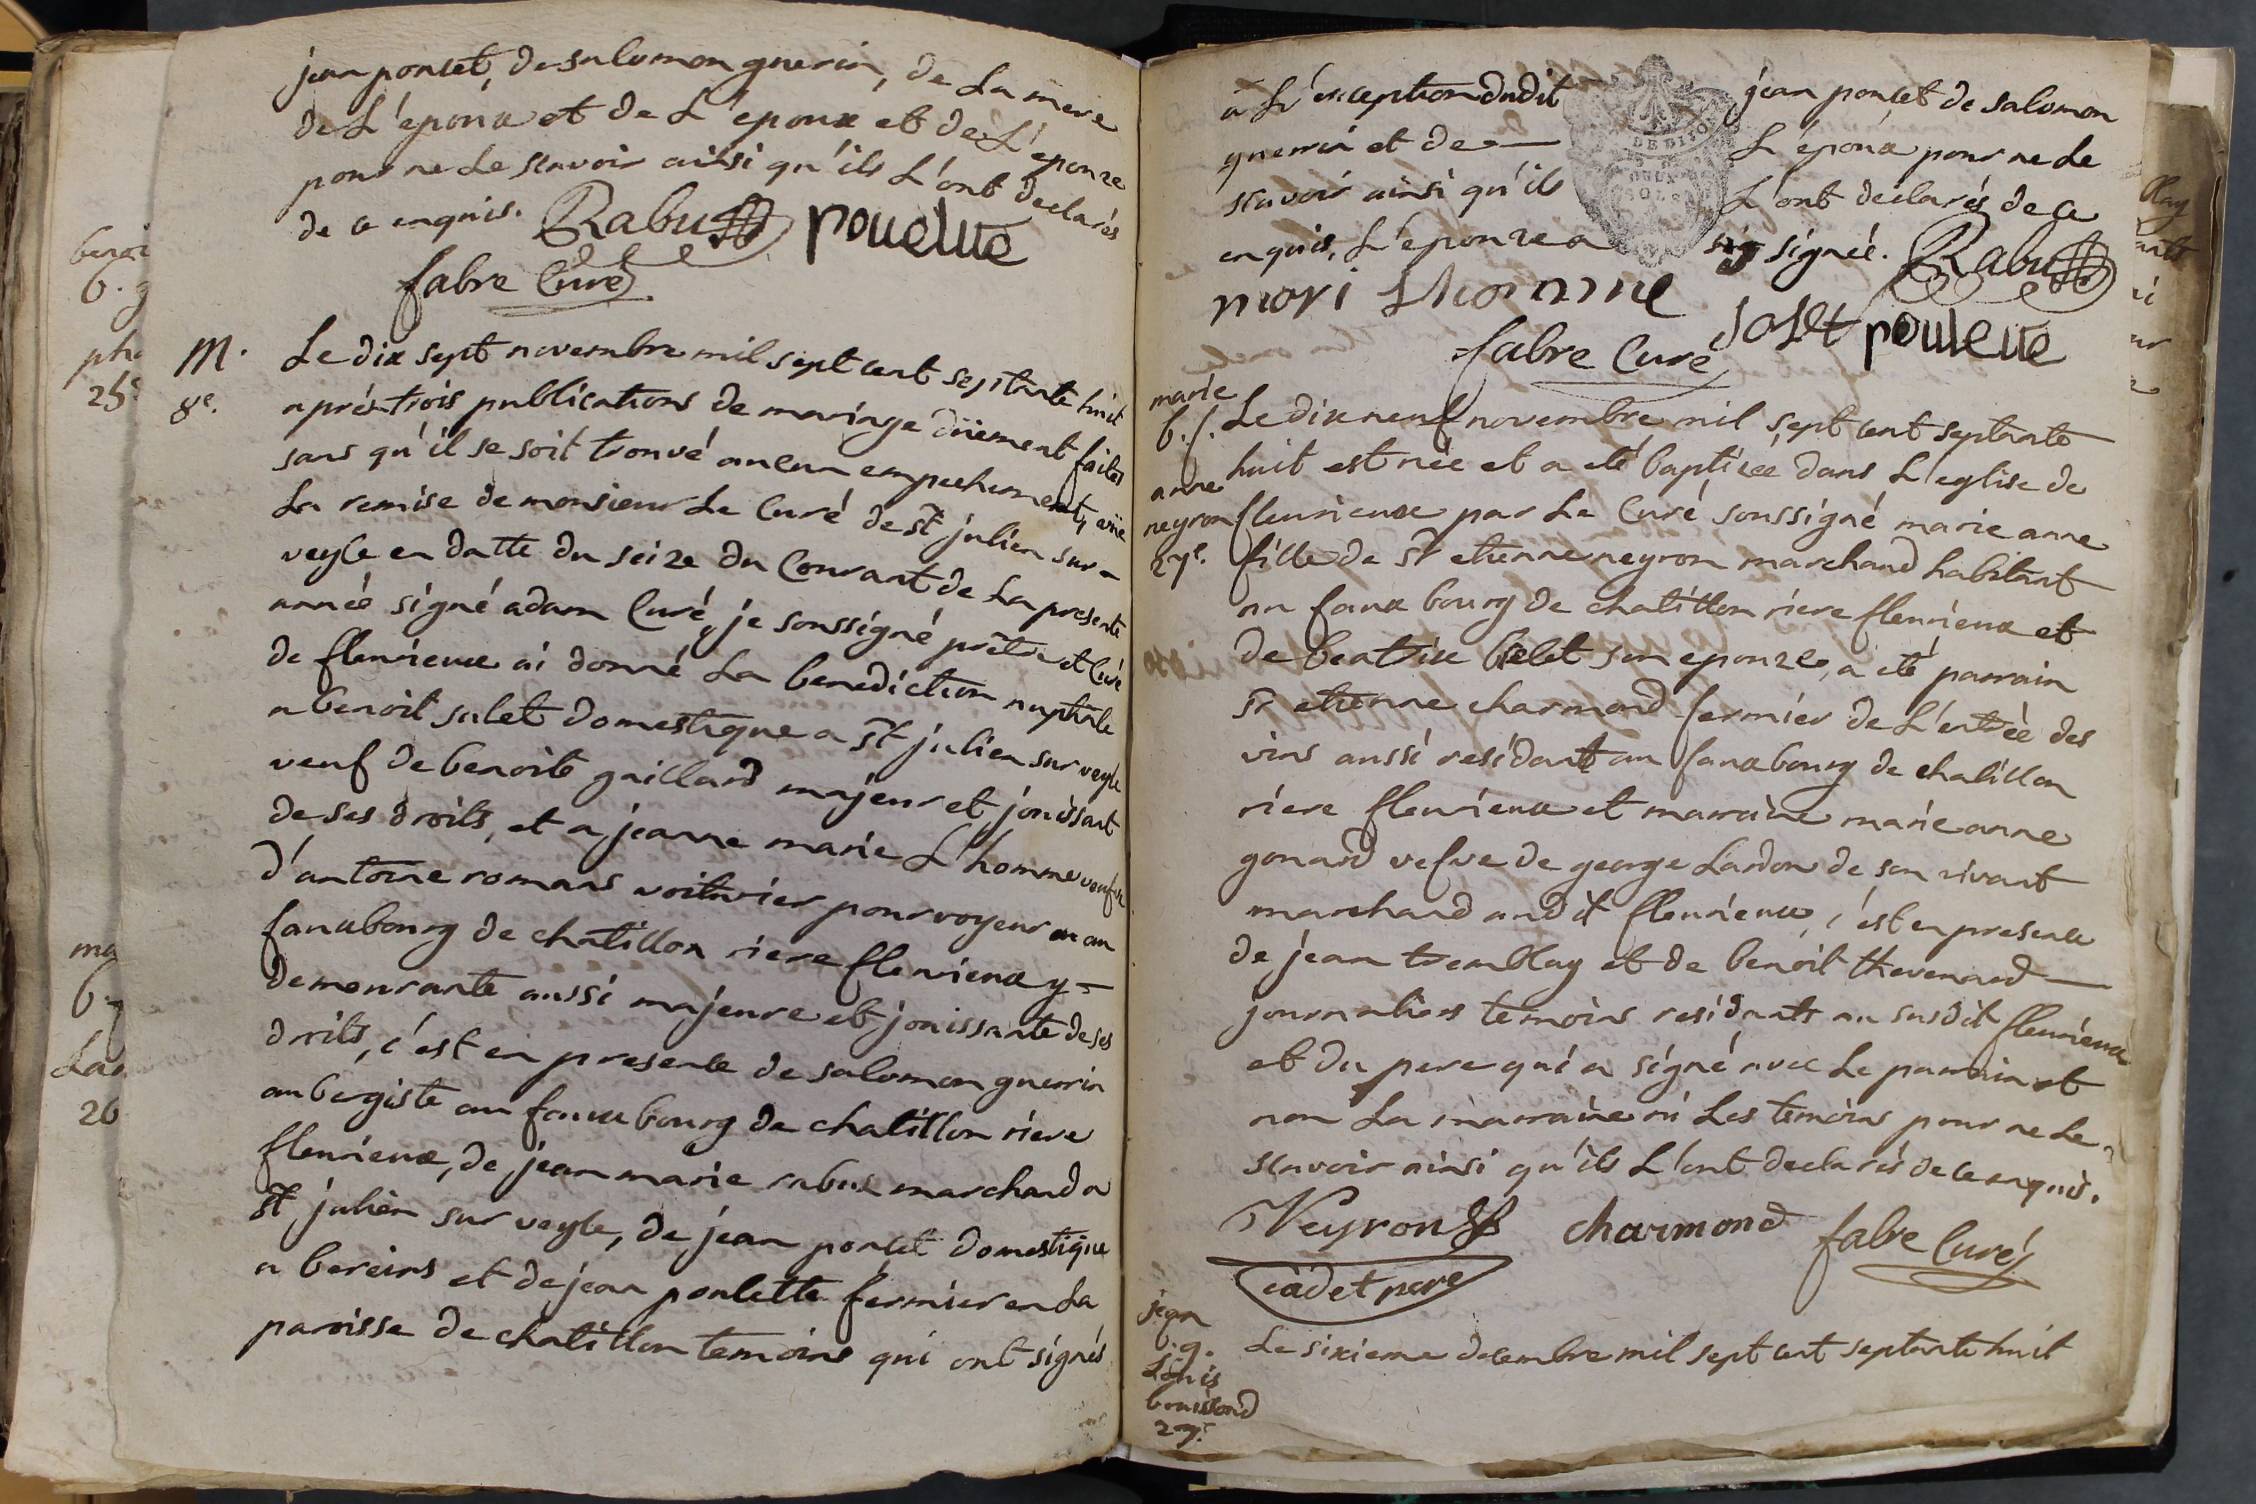 jean poncet, de salomon guerin, de La mere
de L'époux et de L'epoux et de L'épouze
pour ne Le scavoir ainsi qu'ils L'ont declarés
de ce enquis. Rabus pouelue
fabre Curé
M.
8e.
Le dix sept novembre mil sept cent septante huit
aprés trois publications de mariage düement faites
sans qu'il se soit trouvé aucun empechement, vüe
La remise de monsieur Le Curé de st julien sur
veyle en datte du seize du Courant de La presente
année signé adam Curé, je soussigné prêtre et Curé
de fleurieux ai donné La benediction nuptiale
a benoit salet domestique a st julien sur veyle
veuf de benoite gaillard majeur et jouissant
de ses droits, et a jeanne marie L'homme veufve
d'antoine romans voiturier pourvoyeur au
fauxbourg de chatillon riere fleurieux y
demeurante aussi majeure et jouissante de ses
droits, c'est en presence de salomon guerrin
aubergiste au fauxbourg de chatillon riere
fleurieux, de jean marie rabus marchand a
st julien sur veyle, de jean poncet domestique
a bereins et de jean poulette fermier en La
paroisse de chatillon temoins qui ont signés
à L'exception dudit jean poncet de salomon
guerrin et de L'époux pour ne Le
scavoir ainsi qu'ils L'ont declarés de ce
enquis, L'epouze a signée. Rabus
mari Lhomme
joset pouleue
fabre Curé
marie
b. f.
anne
neyron
27e.
Le dix neuf novembre mil sept cent septante
huit est née et a eté baptizée dans L'eglise de
fleurieux par Le Curé soussigné marie anne
fille de sr etienne neyron marchand habitant
au faux bourg de chatillon riere fleurieux et
de beatrix belet son epouze, a eté parrain
sr etienne charmond fermier de L'entrée des
vins aussi residant au fauxbourg de chatillon
riere fleurieux et marraine marie anne
gonard vefve de george Lardon de son vivant
marchand audit fleurieux, c'est en presence
de jean tremblay et de benoit thevenard
journaliers temoins residants au susdit fleurieux
et du pere qui a signé avec Le parrain et
non La marraine ni Les temoins pour ne Le
scavoir ainsi qu'ils L'ont declarés de ce enquis.
Neyron charmond fabre Curé
cadet pere
jean
b. g.
Louis
bouissond
Le sixieme decembre mil sept cent septante huit